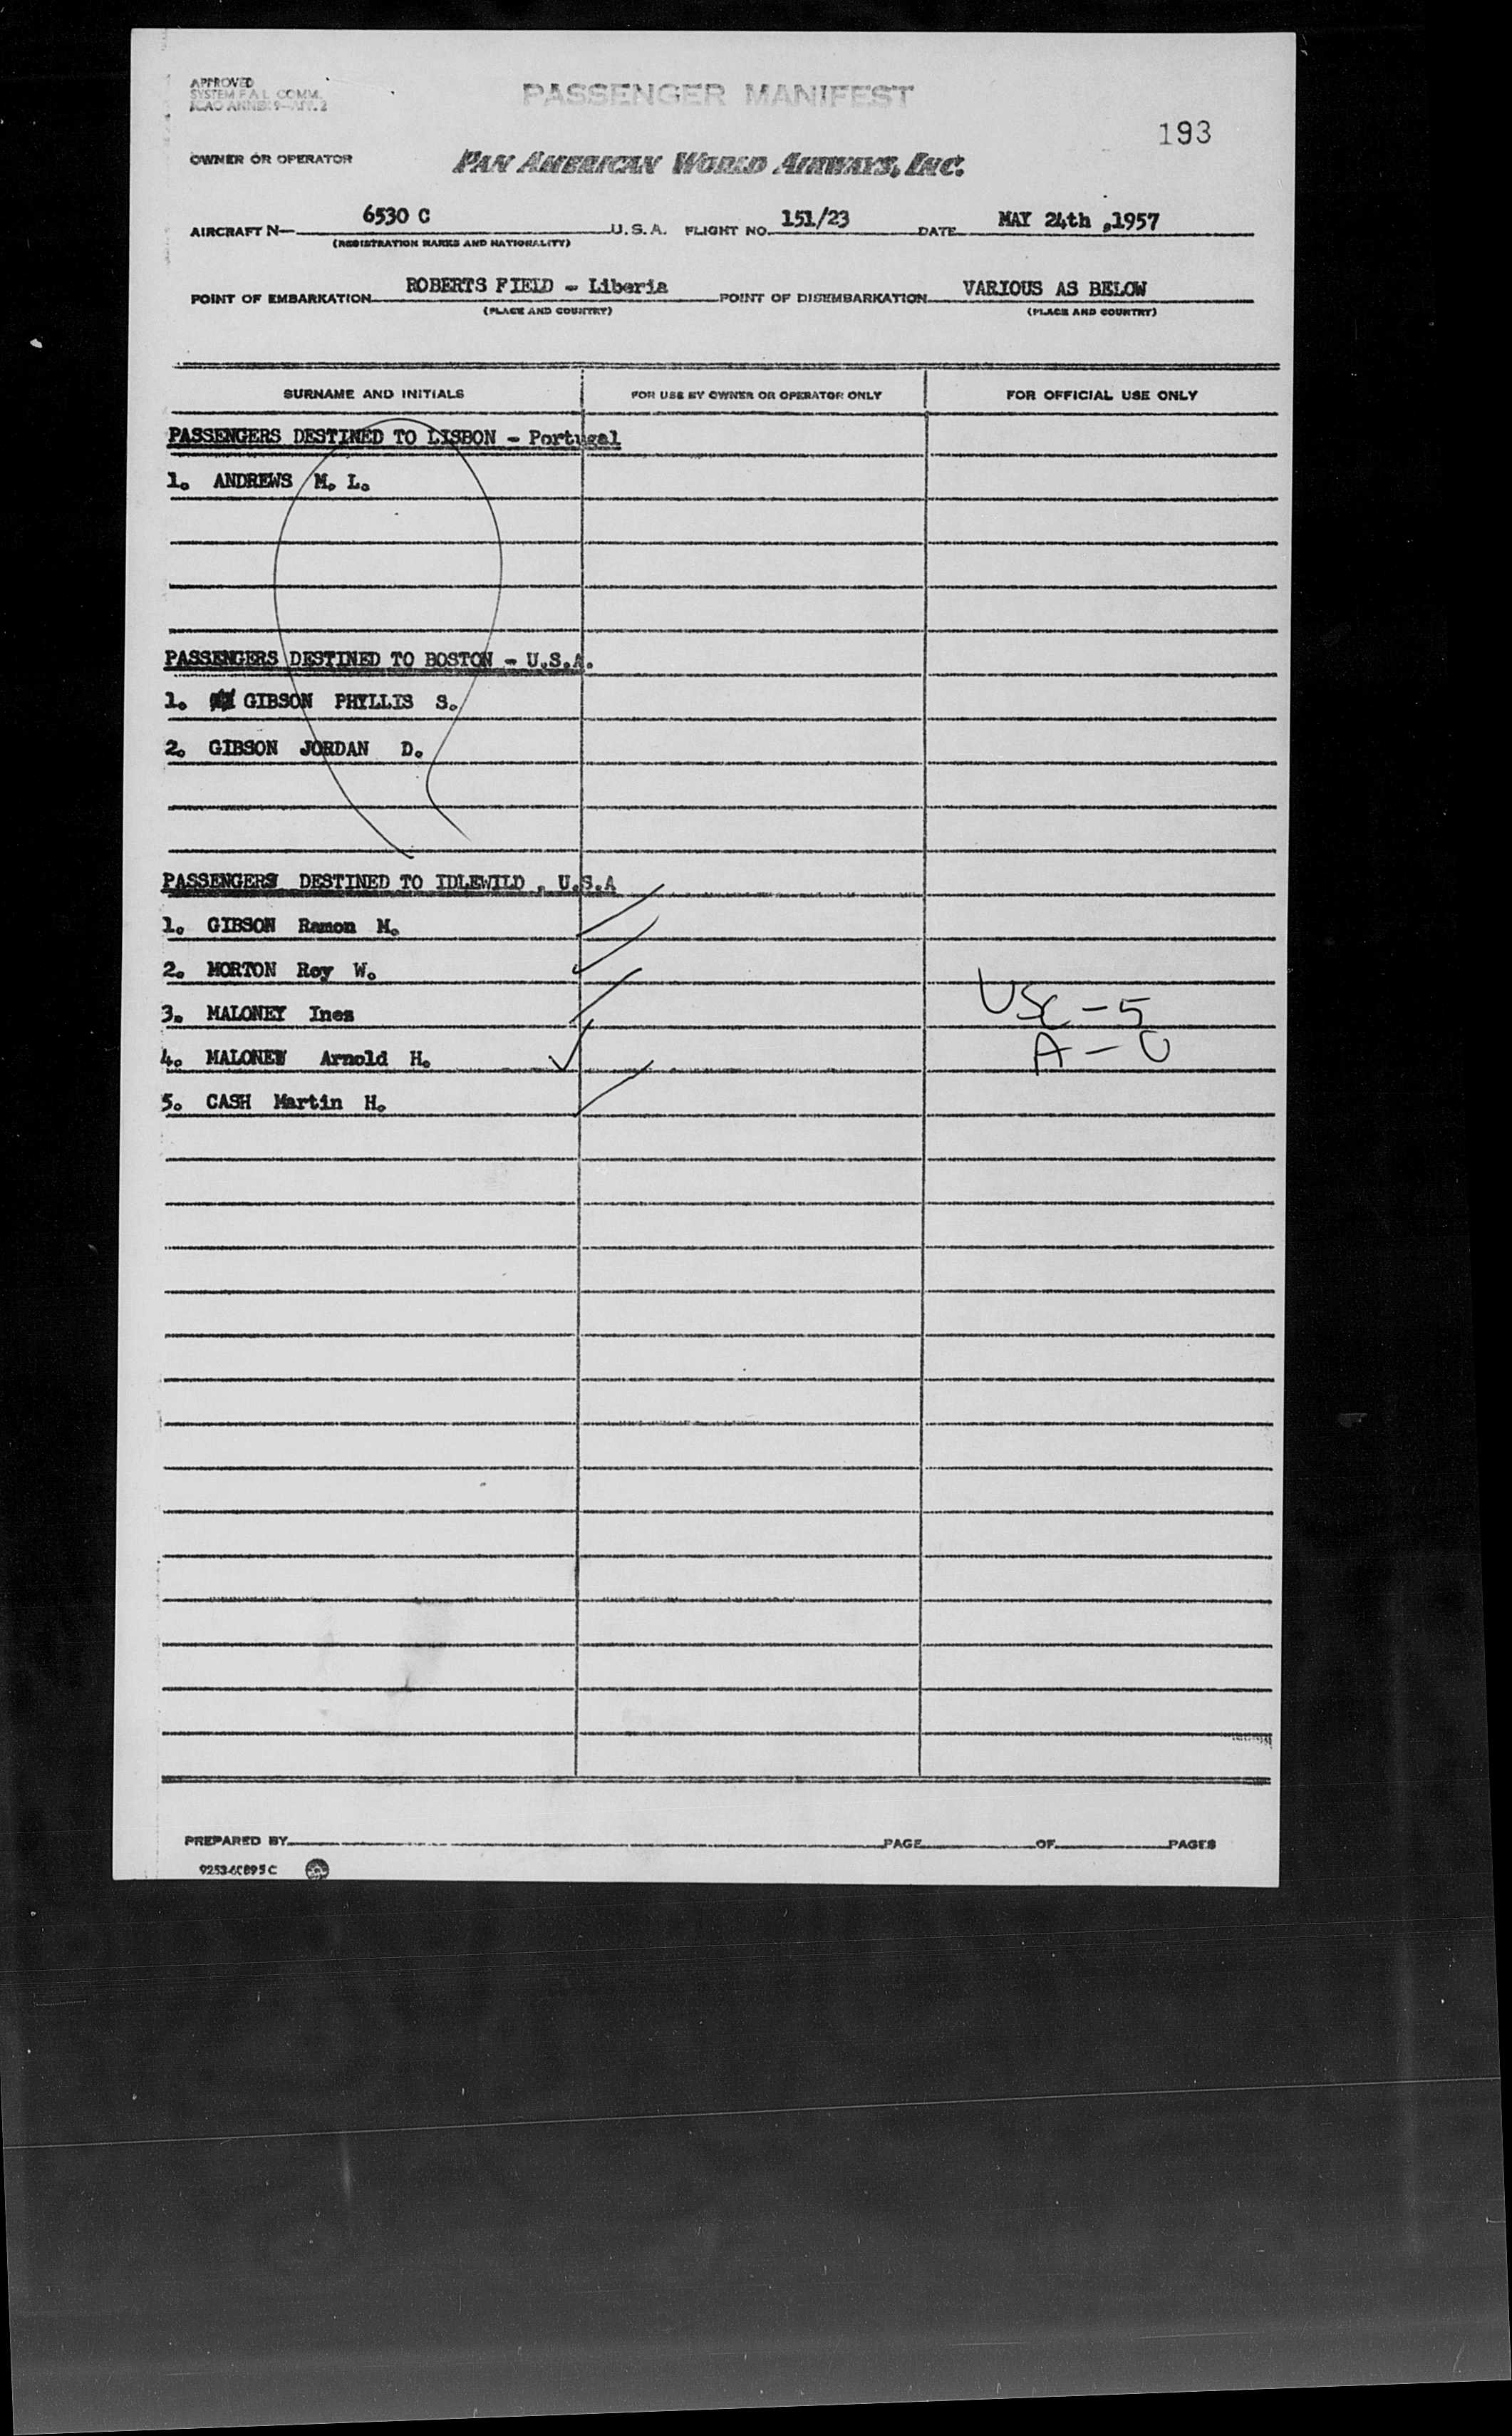 APPROVED
SYSTEM F A L COMM.
ICAO ANNEX 9—APP. 2
PASSENGER MANIFEST
193
OWNER OR OPERATOR
PAN AMERICAN WORLD AIRWAYS, INC.
AIRCRAFT N— 6530 C U.S.A. FLIGHT NO. 151/23 DATE MAY 24th ,1957
(REGISTRATION MARKS AND NATIONALITY)
POINT OF EMBARKATION ROBERTS FIELD - Liberia POINT OF DISEMBARKATION VARIOUS AS BELOW
(PLACE AND COUNTRY) (PLACE AND COUNTRY)
SURNAME AND INITIALS FOR USE BY OWNER OR OPERATOR ONLY FOR OFFICIAL USE ONLY
PASSENGERS DESTINED TO LISBON - Portugal
1. ANDREWS M. L.
PASSENGERS DESTINED TO BOSTON - U.S.A.
1. GIBSON PHYLLIS S.
2. GIBSON JORDAN D.
PASSENGERS DESTINED TO IDLEWILD , U.S.A
1. GIBSON Ramon M.
2. MORTON Roy W.
3. MALONEY Inez
USC - 5
4. MALONEY Arnold H.
A - 0
5. CASH Martin H.
PREPARED BY PAGE OF PAGES